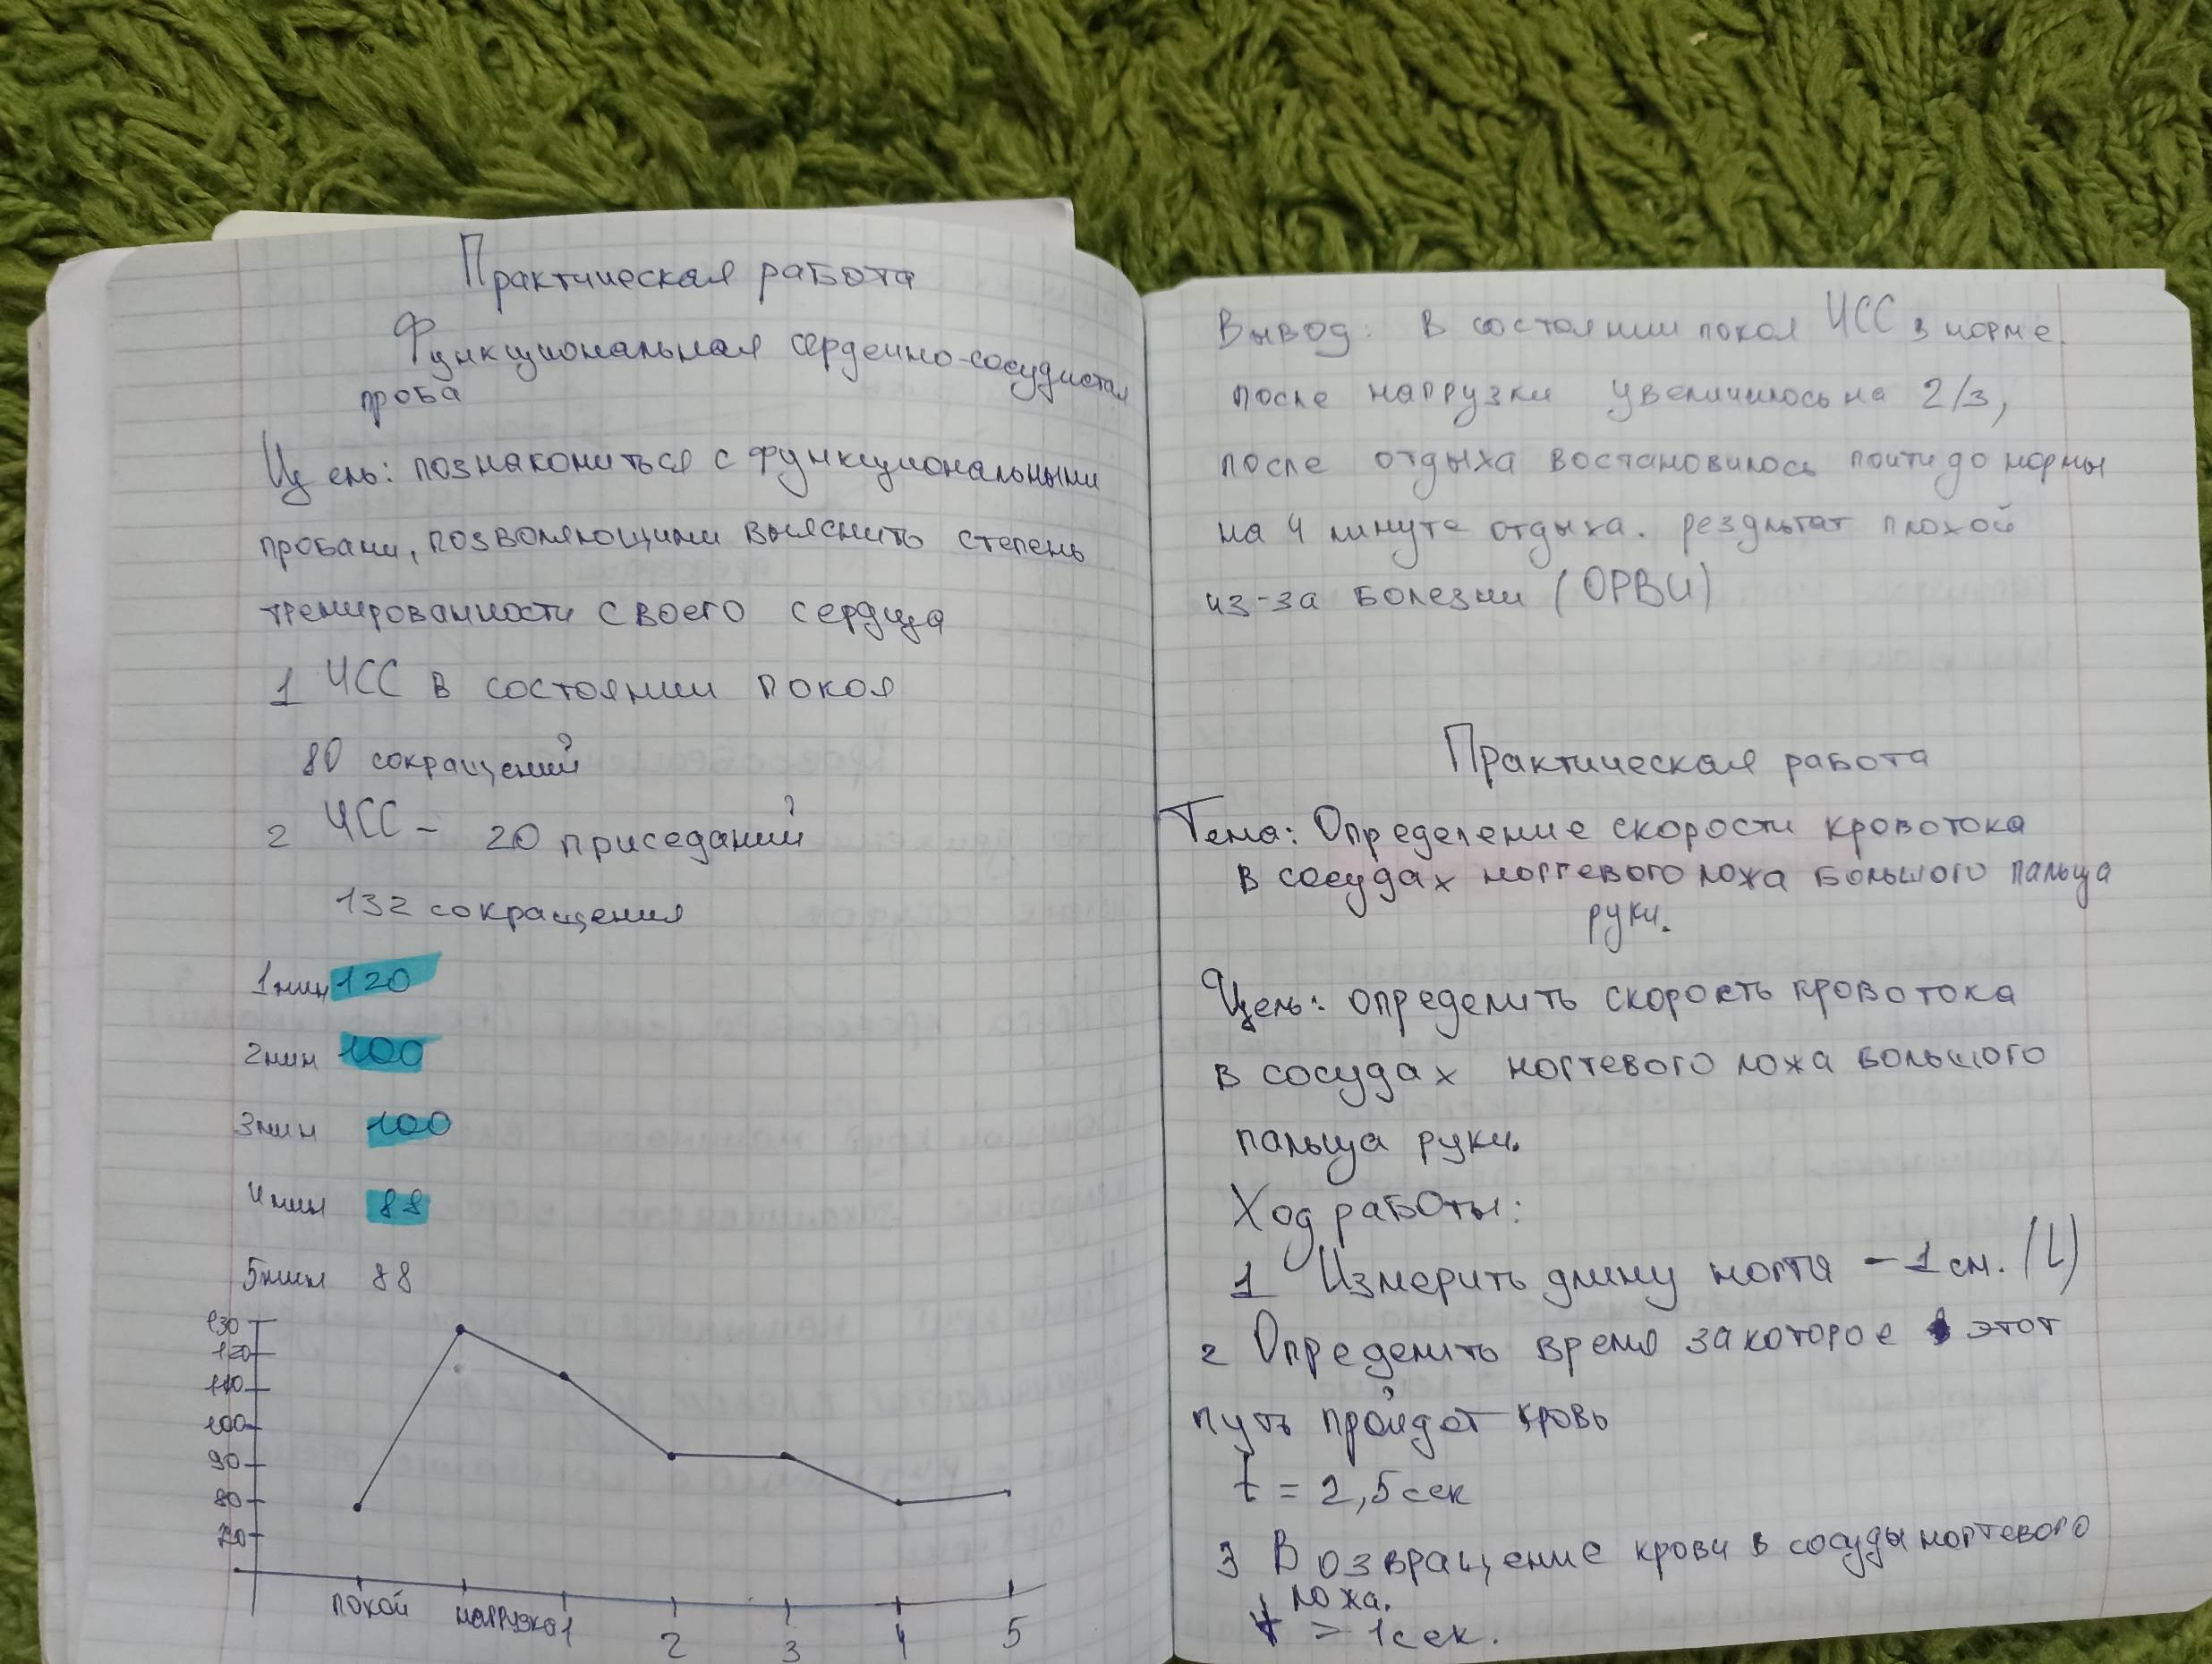 Практическая работа
Функциональная сердечно-сосудистая
проба
Цель: познакомиться с функциональными
пробами, позволяющими выяснить степень
тренированности своего сердца
1 ЧСС в состоянии покоя
80 сокращений
2 ЧСС - 20 приседаний
132 сокращения
1мин 120
2мин 100
3мин 100
4мин 88
5мин 88
130
120
110
100
90
80
70
покой нагрузка 1 2 3 4 5
Вывод: В состоянии покоя ЧСС в норме.
после нагрузки увеличилось на 2/3,
после отдыха востановилось почти до нормы
на 4 минуте отдыха. результат плохой
из-за болезни (ОРВИ)
Практическая работа
Тема: Определение скорости кровотока
в сосудах ногтевого ложа большого пальца
руки.
Цель: определить скорость кровотока
в сосудах ногтевого ложа большого
пальца руки.
Ход работы:
1 Измерить длину ногтя - 1 см. (L)
2 Определить время за которое этот
путь пройдет кровь
t = 2,5 сек
3 Возвращение крови в сосуды ногтевого
ложа.
t > 1 сек.